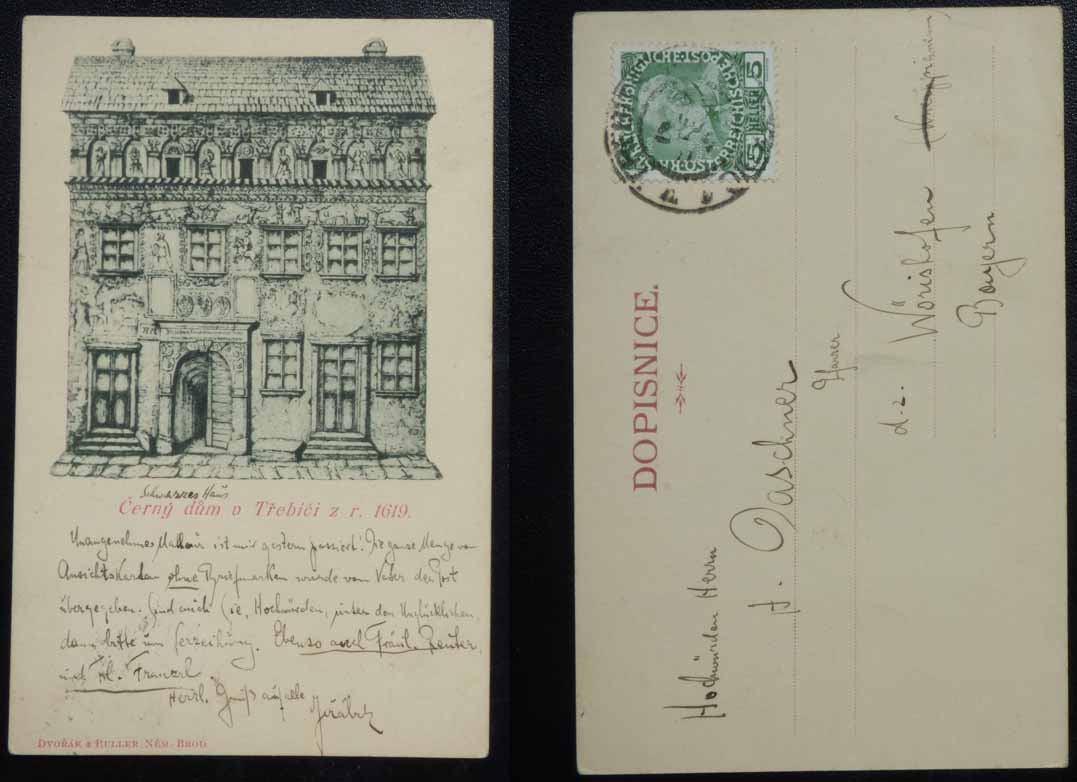 Schwarzes Haus
Černý dům v Třebíči z r. 1619.
Unangenehmes Malheur ist mir gestern passiert! Die ganze Menge von
Ansichtskarten ohne Briefmarken wurde vom Vater der Post
übergegeben. Sind auch Sie, Hochwürden, unter den Unglücklichen,
dann bitte um Verzeihung. Ebenso auch Fräul. Reuter
und Frl. Franzel.
Herzl. Gruß auf alle
DVOŘÁK & RULLER, NĚM.-BROD
KAISERLICHE KÖNIGLICHE ÖSTERREICHISCHE POST
5 HELLER 5
DOPISNICE.
Hochwürden Herrn
d. z. Wörishofen
Bayern